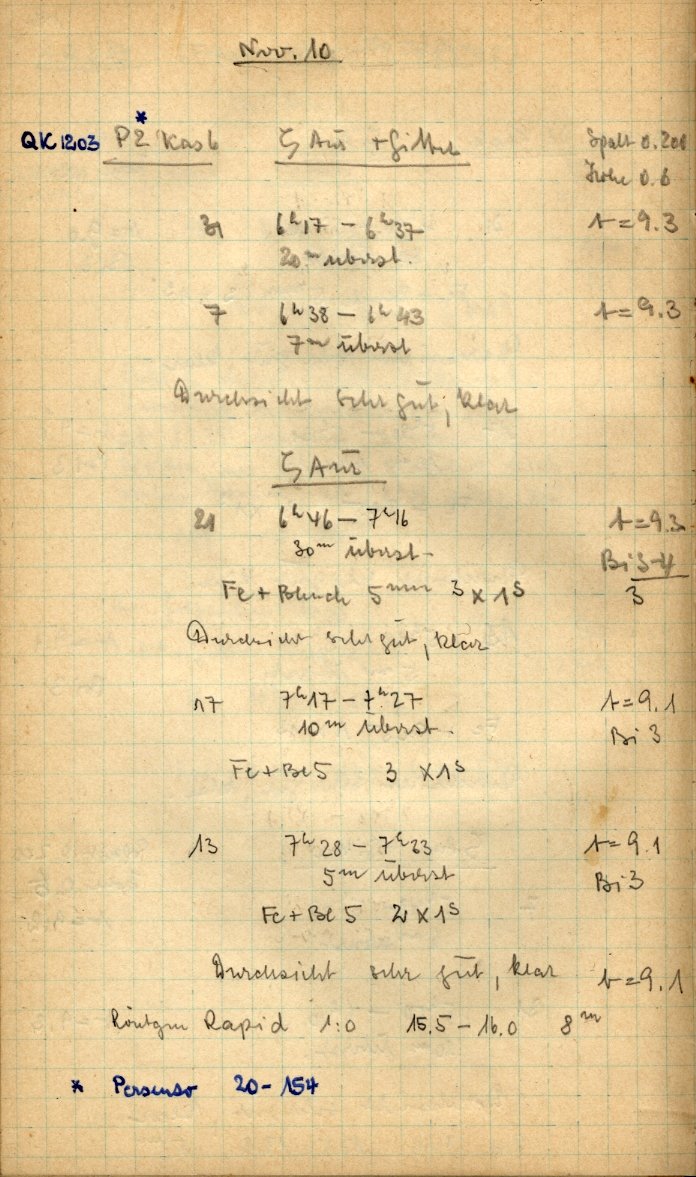 Nov. 10
*
QK 1203 P2 Kas 6 ζ Aur + Gitter Spalt 0.200
Höhe 0.6
31 6h17 – 6h37 t = 9.3
20m überst.
7 6h38 – 6h43 t = 9.3
7m überst
Durchsicht sehr gut, klar
ζ Aur
21 6h46 – 7h16 t = 9.3
30m überst. Bi 3-4
Fe + Blende 5mm 3 x 1s 3
Durchsicht sehr gut, klar
17 7h17 – 7h27 t = 9.1
10m überst. Bi 3
Fe + Bl 5 3 x 1s
13 7h28 – 7h33 t = 9.1
5m überst Bi 3
Fe + Bl 5 2 x 1s
Durchsicht sehr gut, klar t = 9.1
Röntgen Rapid 1:0 15.5 – 16.0 8m
* Persenso 20 - 154